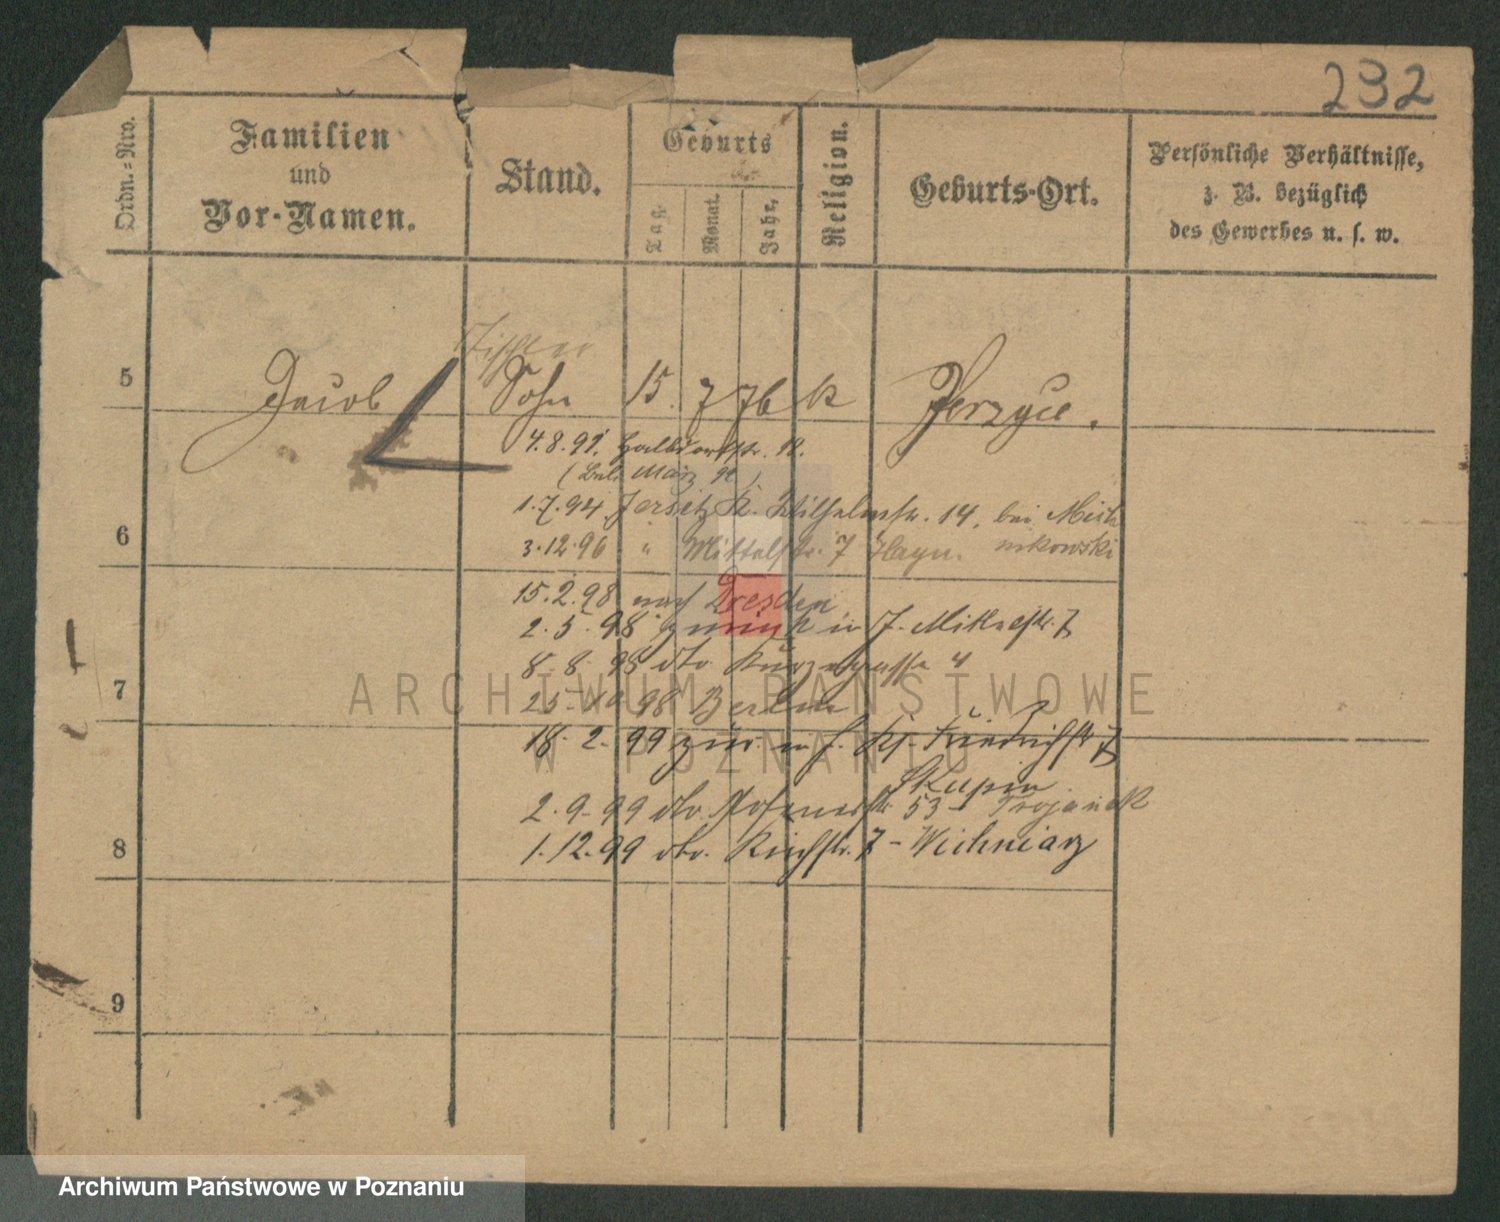 232
Ordn.-Nro.
Familien
und
Vor-Namen.
Stand.
Geburts
Tag.
Monat.
Jahr.
Religion.
Geburts-Ort.
Persönliche Verhältnisse,
z. B. bezüglich
des Gewerbes u. s. w.
Tischler
5 Jacob Sohn 15. 7 76 k Jerzyce.
4.8.91. Halbdorfstr. 18.
März
1.7.94 Jersitz K. Wilhelmstr. 14. bei Mich
6
3.12.96 " Mittelstr. 7 nikowski
15.2.98 nach Dresden
2.5.98 zurück in J. 7
8.8.98 dto. 4
7
25. 98 Berlin
18.2.99 zur. in J. Ks. Friedrichstr. 7
Skupin
2.9.99 dto. Posenerstr. 53 - Trojanek
8
1.12.99 dto. Kirchstr. 7 - Wichniarz
9
ARCHIWUM PAŃSTWOWE
W POZNANIU
Archiwum Państwowe w Poznaniu